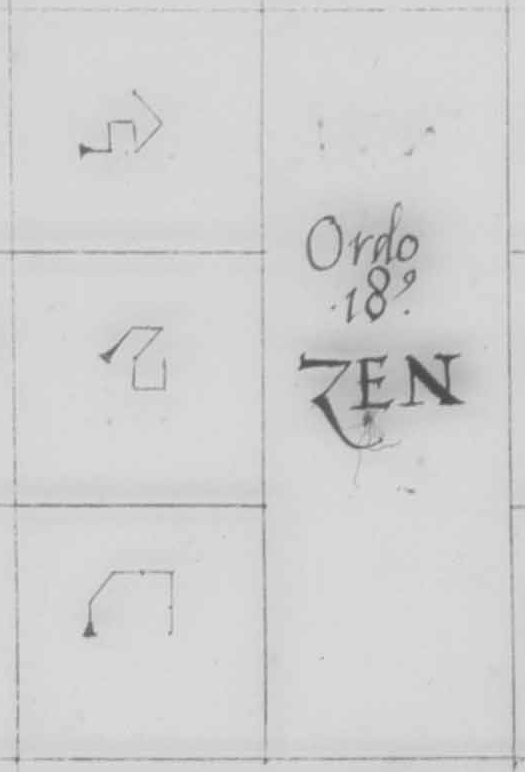 Ordo
·18⁹·
ZEN